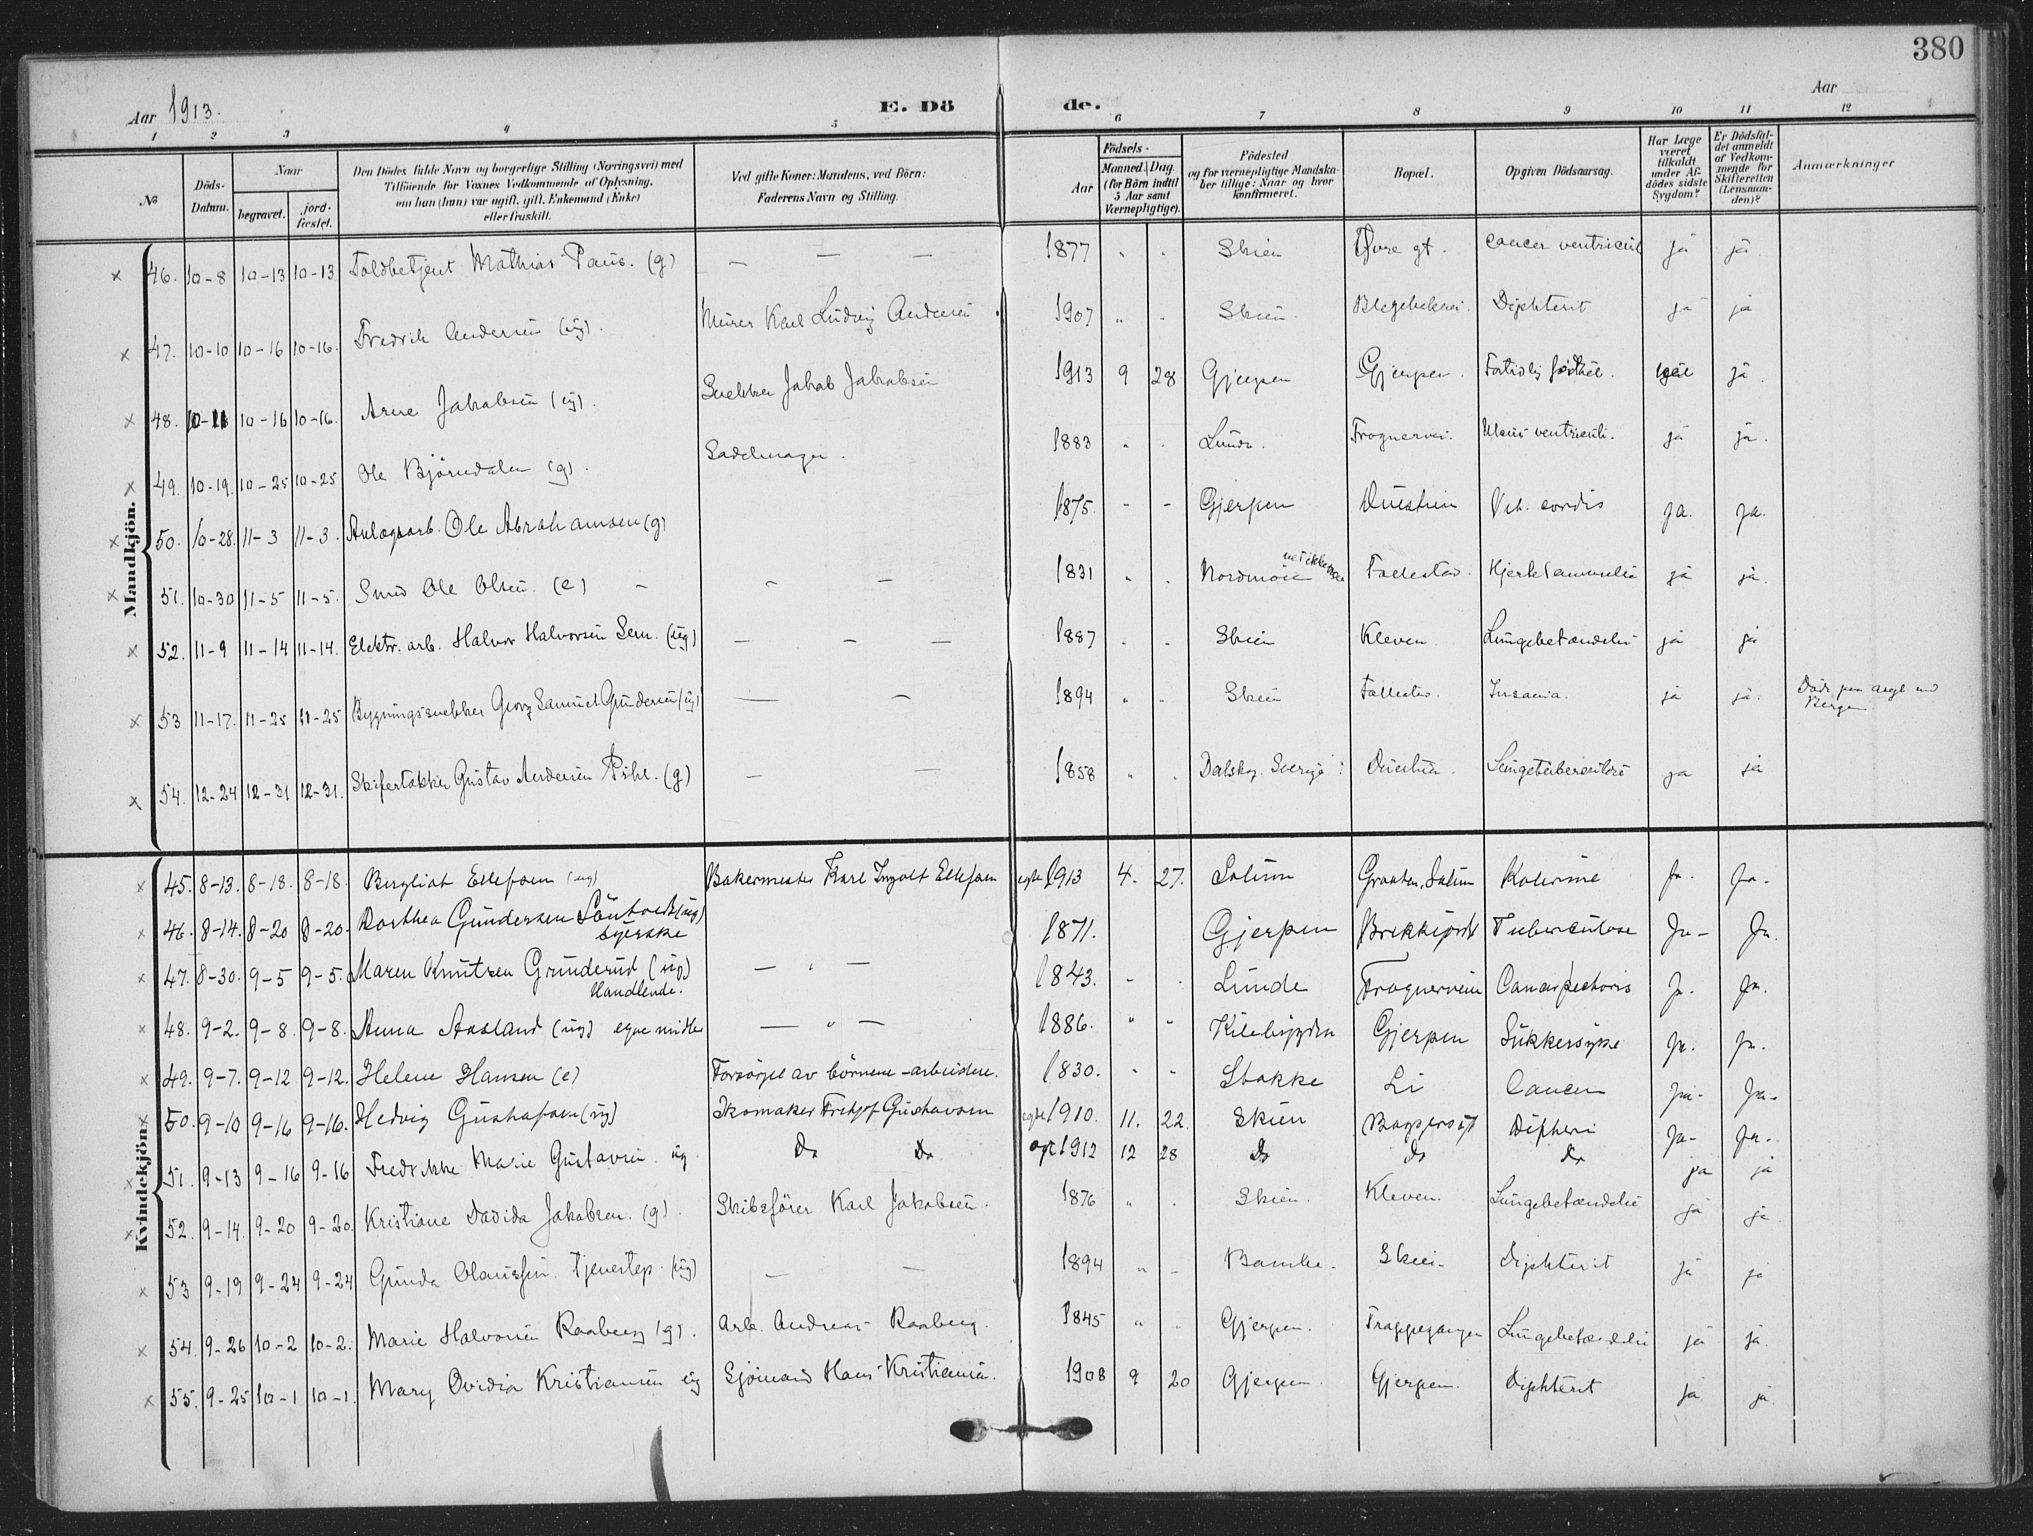 380
Aar 1913.
E. Dö de.
Aar
1 2 3 4 5 6 7 8 9 10 11 12
№
Döds-Datum.
Naar
begravet.
jord-fæstet.
Den Dödes fulde Navn og borgerlige Stilling (Næringsvei) med
Tilföiende for Voxnes Vedkommende af Oplysning,
om han (hun) var ugift, gift, Enkemand (Enke)
eller fraskilt.
Ved gifte Koner: Mandens, ved Börn:
Faderens Navn og Stilling.
Födsels-
Aar
Maaned. Dag.
(for Börn indtil
5 Aar samt
Værnepligtige).
Födested
og for værnepligtige Mandskaber tillige: Naar og hvor
konfirmeret.
Bopæl.
Opgiven Dödsaarsag.
Har Læge
været
tilkaldt
under Afdödes sidste
Sygdom?
Er Dödsfaldet anmeldt
af Vedkommende for
Skifteretten
(Lensmanden)?
Anmærkninger
Mandkjön.
46. 10-8 10-13 10-13 Toldbetjent Mathias Paus. (g) — — — 1877 " . Skien Øvre gt. cancer ventriculi ja ja
47. 10-10 10-16 10-16. Fredrik Andersen (ug). Murer Karl Ludvig Andersen 1907 " . Skien Blegebakken. Difhterit ja ja
48. 10-11 10-16 10-16. Arne Jakobsen (ug). Snekker Jakob Jakobsen 1913 9 28 Gjerpen Gjerpen. Fortidlig født. ja.
49. 10-19. 10-25 10-25 Ole Björndalen (g). Sadelmager. 1883 " . Lunde. Frognervei. Ulcus ventriculi. ja ja.
50. 10-28. 11-3 11-3. Anlægsarb. Ole Abrahamsen (g) 1875. - - Gjerpen Duestien Vit. cordis ja. ja.
51. 10-30 11-5 11-5. Smed Ole Olsen. (e) — - - 1831 " . Nordmöre Follestad. ja ja.
52. 11-9 11-14 11-14. Elektr. arb. Halvor Halvorsen Sem. (ug) — — — 1887 . . Skien Kleven. Lungebetændelse ja ja
53 11-17. 11-25 11-25 Bygningssnekker Georg Samuel Gundersen (ug) — - 1894 " . Skien Follestad. Insania. ja ja. Döde paa asyl ved
Bergen
54. 12-24 12-31 12-31. Skifertækker Gustav Andersen Pihl. (g) — — 1858 " . Dalskog. Sverige: Duestien. Lungetuberculose ja ja
Kvindekjön
45. 8-13. 8-18. 8-18. Bergliot Ellefsen (ug) Bakermester Karl Ingolf Ellefsen egte 1913 4. 27. Solum Graaten, Solum Kolerine Ja. Ja.
46. 8-14. 8-20 8-20. Dorthea Gundersen (ug)
syerske 1871. Gjerpen Brekkejord Tuberculose Ja- Ja.
47. 8-30. 9-5 9-5. Maren Knutsen Grunderud (ug)
Handlende. — " — 1843. - . Lunde Frognerveien Cancer pectoris Ja. Ja.
48. 9-2. 9-8. 9-8. Anna Aasland (ug) egne midler — " — 1886. " " Kilebygden Gjerpen Sukkersyke Ja. Ja.
49. 9-7. 9-12 9-12. Helene Hansen (e) Forsörget av börnene - arbeidere. 1830. - - Stokke Li Cancer Ja- Ja-
50. 9-10 9-16 9-16. Hedvig Gustafsen (ug) Skomaker Fritjof Gustavsen egte 1910. 11. 22 Skien Difteri Ja- Ja-
51. 9-13 9-16 9-16 Fredrikke Marie Gustavsen ug Do Do egte 1912 12 28 Do Do Do ja ja
52. 9-14. 9-20 9-20. Kristiane Davida Jakobsen. (g) Skibsförer Karl Jakobsen. 1876 " . Skien. Kleven. Lungebetændelse ja ja.
53 9-19 9-24 9-24 Gunda Olaussen. Tjenestep. (ug) — — 1894 " - Bamble. Skien. Difhterit ja ja
54. 9-26 10-2 10-2. Marie Halvorsen Raaberg (g). Arb. Andreas Raaberg. 1845 " " Gjerpen. Trappegangen Lungebetændelse ja ja.
55. 9-25 10-1 10-1. Mary Ovidia Kristiansen ug Sjömand Hans Kristiansen. 1908 9 20 Gjerpen. Gjerpen. Difhterit ja ja.